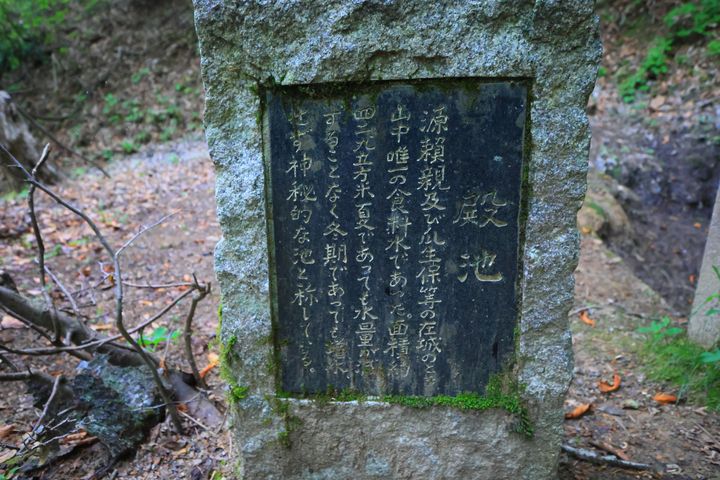 殿池
源頼親及び瓜生保等の在城のとき
山中唯一の食料水であった。面積約
四二九五平米夏であっても水量が減
ずることなく冬期であっても増水
せず神秘的な池と称している。